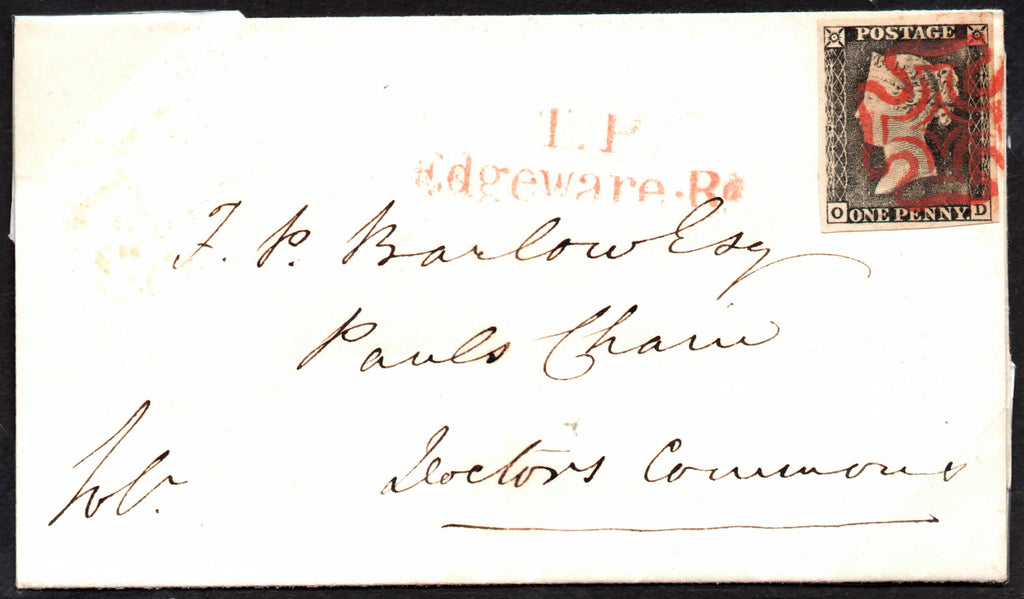 POSTAGE
O ONE PENNY. D
T.P
Edgeware.Rd
F. P. Barlow Esq
Pauls Chain
Doctors Commons